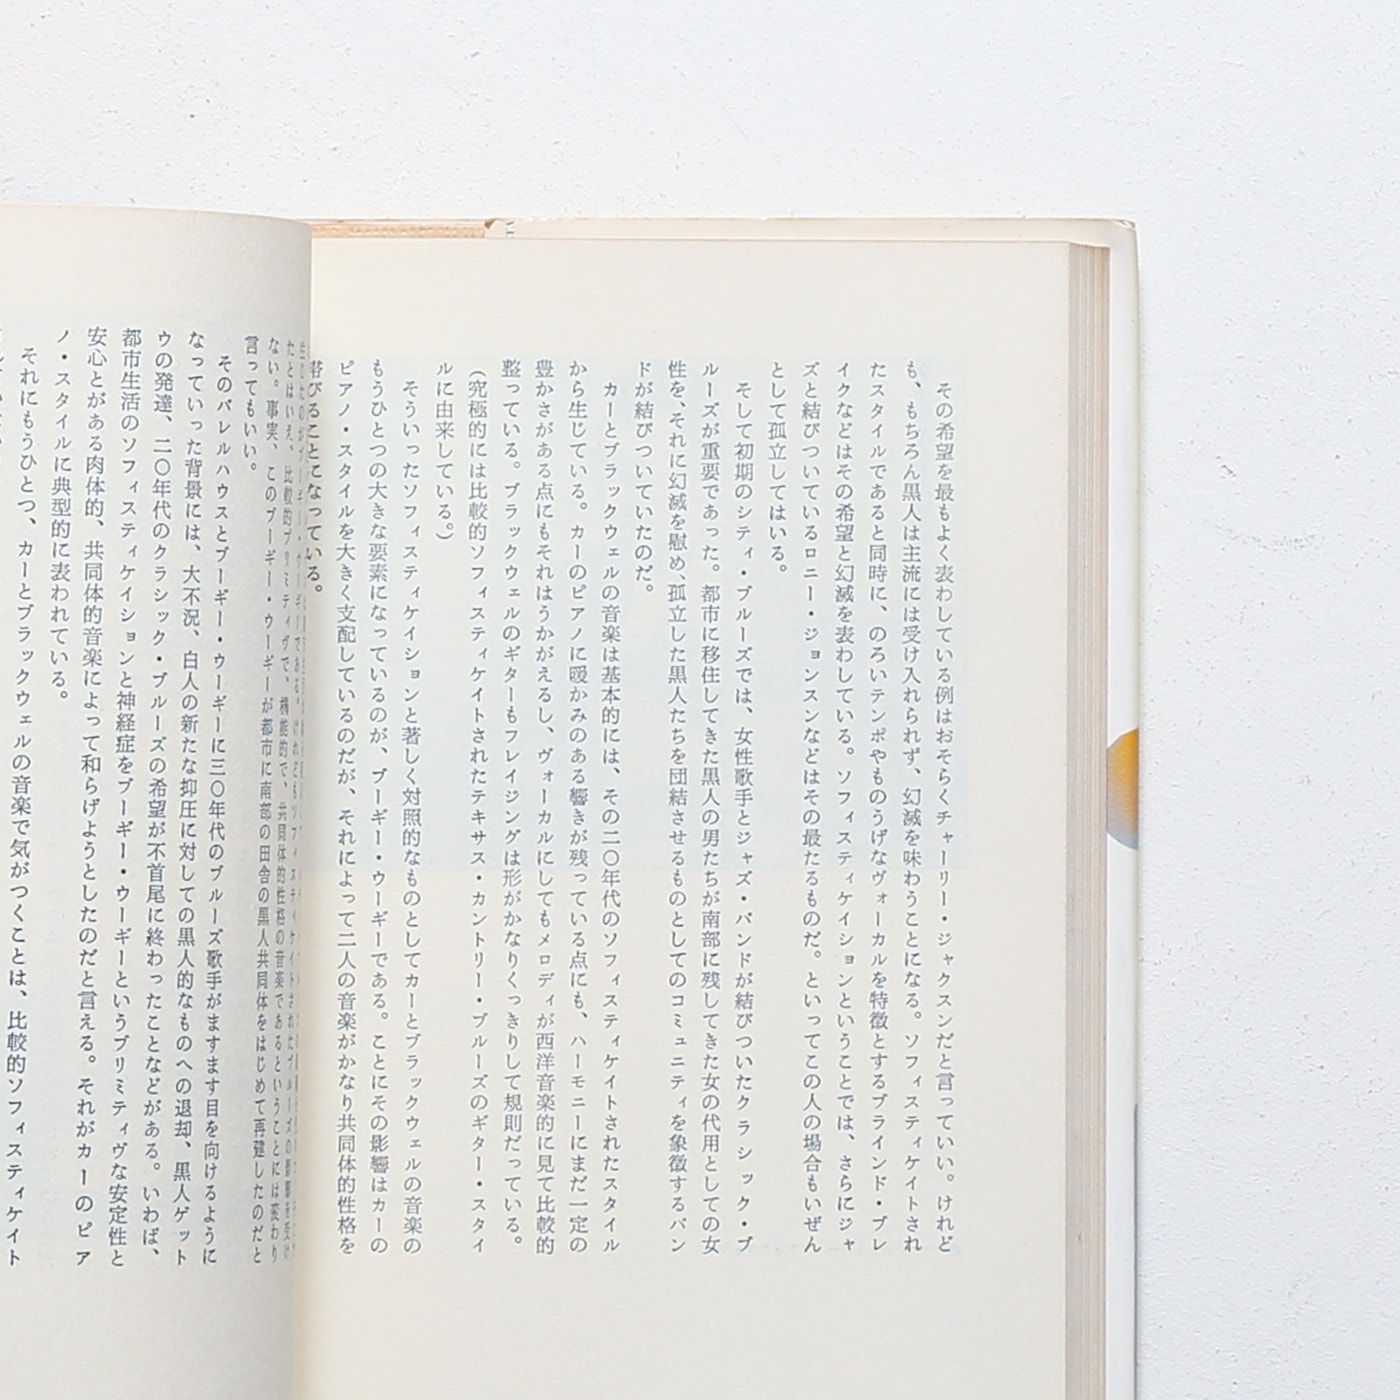 その希望を最もよく表わしている例はおそらくチャーリー・ジャクスンだと言っていい。けれど
も、もちろん黒人は主流には受け入れられず、幻滅を味わうことになる。ソフィスティケイトされ
たスタイルであると同時に、のろいテンポやものうげなヴォーカルを特徴とするブラインド・ブレ
イクなどはその希望と幻滅を表わしている。ソフィスティケイションということでは、さらにジャ
ズと結びついているロニー・ジョンスンなどはその最たるものだ。といってこの人の場合もいぜん
として孤立してはいる。
そして初期のシティ・ブルーズでは、女性歌手とジャズ・バンドが結びついたクラシック・ブ
ルーズが重要であった。都市に移住してきた黒人の男たちが南部に残してきた女の代用としての女
性を、それに幻滅を慰め、孤立した黒人たちを団結させるものとしてのコミュニティを象徴するバン
ドが結びついていたのだ。
カーとブラックウェルの音楽は基本的には、その二〇年代のソフィスティケイトされたスタイル
から生じている。カーのピアノに暖かみのある響きが残っている点にも、ハーモニーにまだ一定の
豊かさがある点にもそれはうかがえるし、ヴォーカルにしてもメロディが西洋音楽的に見て比較的
整っている。ブラックウェルのギターもフレイジングは形がかなりくっきりして規則だっている。
(究極的には比較的ソフィスティケイトされたテキサス・カントリー・ブルーズのギター・スタイ
ルに由来している。)
そういったソフィスティケイションと著しく対照的なものとしてカーとブラックウェルの音楽の
もうひとつの大きな要素になっているのが、ブーギー・ウーギーである。ことにその影響はカーの
ピアノ・スタイルを大きく支配しているのだが、それによって二人の音楽がかなり共同体的性格を
帯びることになっている。
たとはいえ、比較的プリミティヴで、機能的で、共同体的性格の音楽であるということには変わり
ない。事実、このブーギー・ウーギーが都市に南部の田舎の黒人共同体をはじめて再建したのだと
言ってもいい。
そのバレルハウスとブーギー・ウーギーに三〇年代のブルーズ歌手がますます目を向けるように
なっていった背景には、大不況、白人の新たな抑圧に対しての黒人的なものへの退却、黒人ゲット
ウの発達、二〇年代のクラシック・ブルーズの希望が不首尾に終わったことなどがある。いわば、
都市生活のソフィスティケイションと神経症をブーギー・ウーギーというプリミティヴな安定性と
安心とがある肉体的、共同体的音楽によって和らげようとしたのだと言える。それがカーのピア
ノ・スタイルに典型的に表われている。
それにもうひとつ、カーとブラックウェルの音楽で気がつくことは、比較的ソフィスティケイト